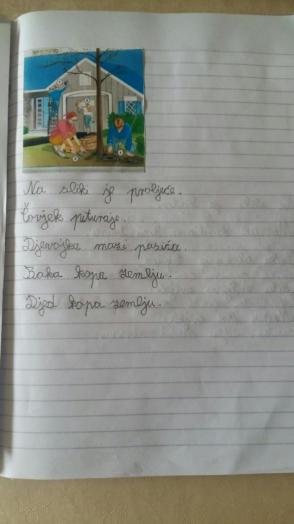 Na slici je proljeće.
Čovjek pituraje.
Djevojka mazi pasića.
Baka kopa zemlju.
Djed kopa zemlju.